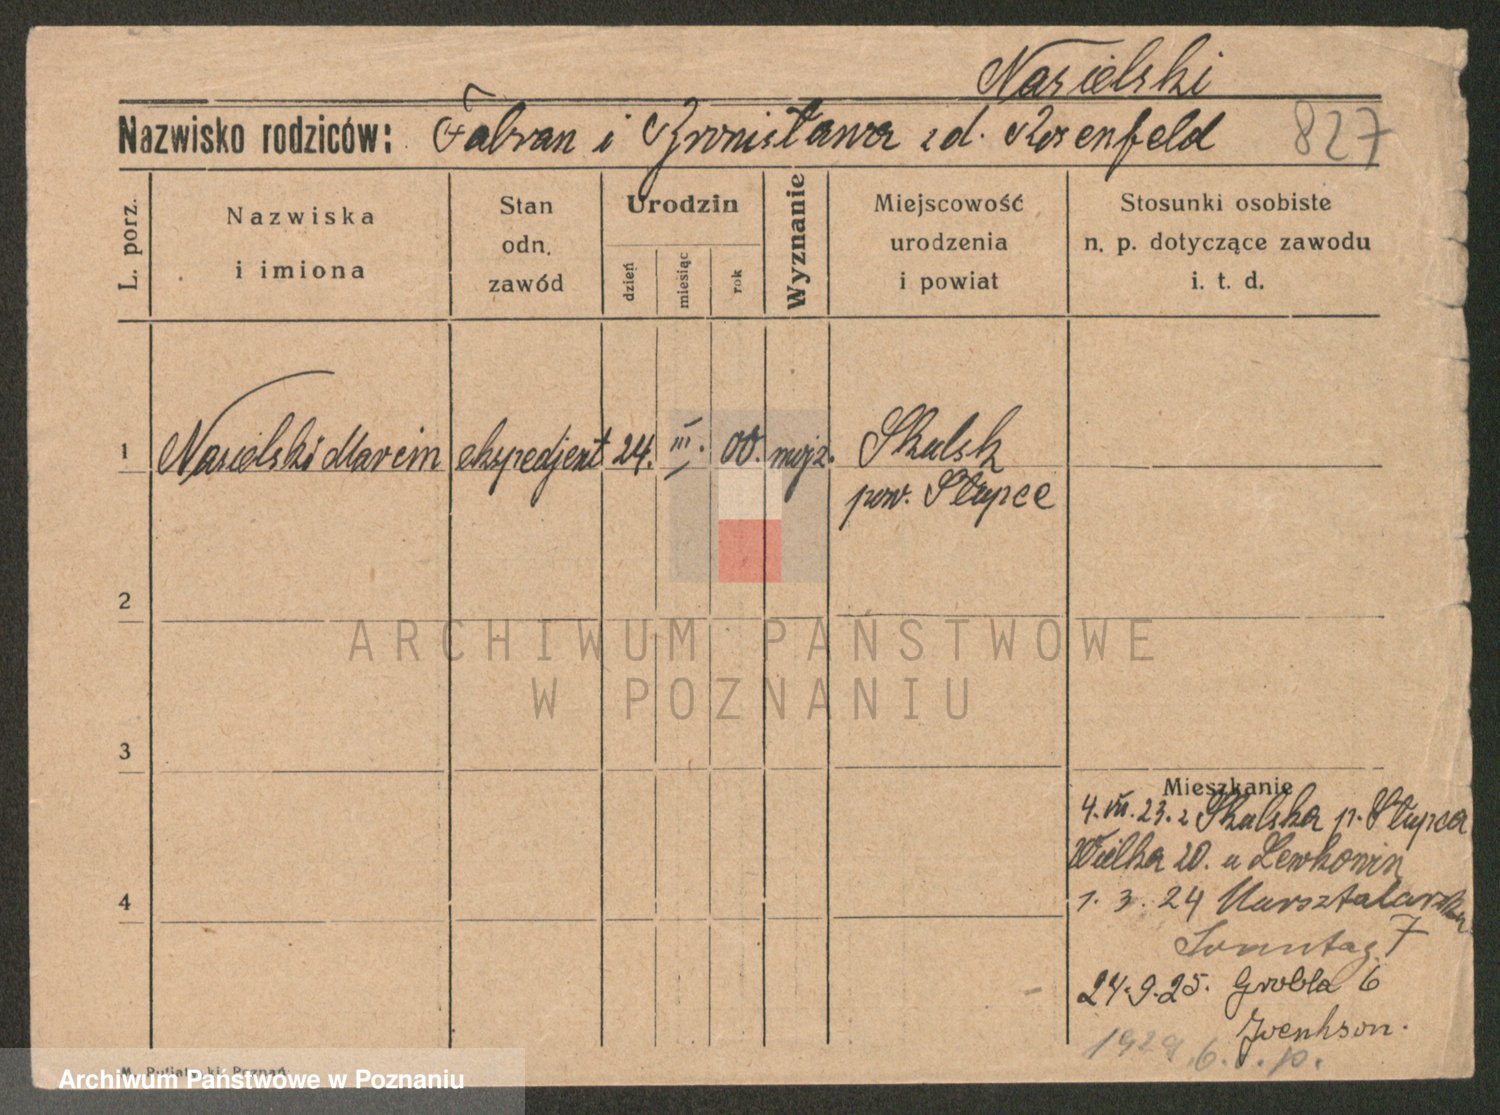 Nasielski
Nazwisko rodziców: Fabian i Bronisława zd. Rosenfeld 827
L. porz.
Nazwiska
i imiona
Stan
odn.
zawód
Urodzin
dzień
miesiąc
rok
Wyznanie
Miejscowość
urodzenia
i powiat
Stosunki osobiste
n. p. dotyczące zawodu
i. t. d.
1 Nasielski Marcin ekspedjent 24. III. 00. mojż. Skulsk
pow. Słupce
2
3
4
Mieszkanie
4. VII. 23. z Skulska p. Słupca
Wielka 20. u Lewkowin
1. 3. 24 Masztalarska
Sonntag 7
24.9.25. Grobla 6
ARCHIWUM PAŃSTWOWE
W POZNANIU
Poznań
Archiwum Państwowe w Poznaniu